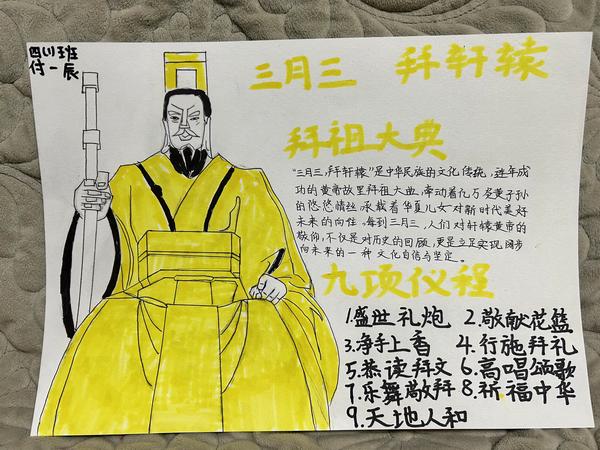 四(1)班
付一辰
三月三 拜轩辕
拜祖大典
"三月三,拜轩辕"是中华民族的文化传统,连年成
功的黄帝故里拜祖大典,牵动着亿万炎黄子孙
的悠悠情丝,承载着华夏儿女对新时代美好
未来的向往。每到三月三,人们对轩辕黄帝的
敬仰,不仅是对历史的回顾,更是立足实现,阔步
向未来的一种文化自信与坚定。
九项仪程
1.盛世礼炮 2.敬献花篮
3.净手上香 4.行施拜礼
5.恭读拜文 6.高唱颂歌
7.乐舞敬拜 8.祈福中华
9.天地人和